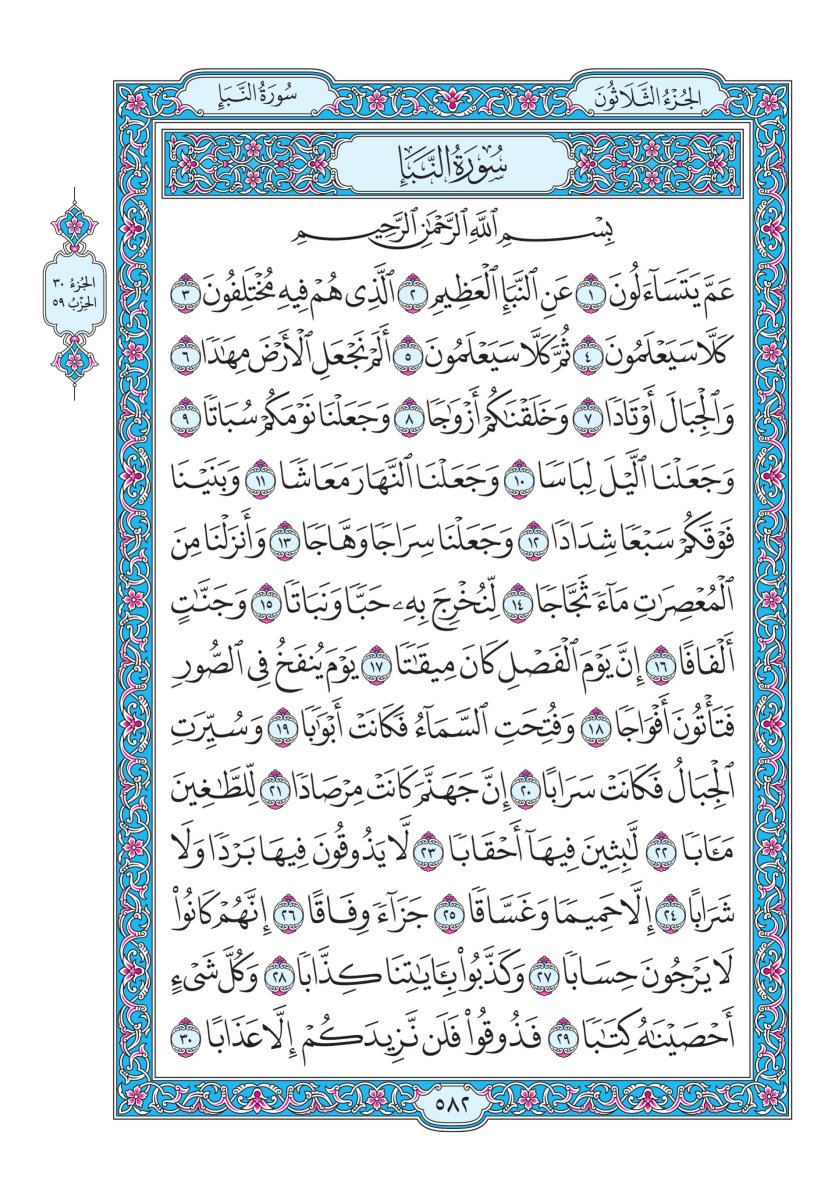 الجُزْءُ الثَّلَاثُونَ
سُورَةُ النَّبَإِ
سُورَةُ النَّبَإِ
بِسْمِ ٱللَّهِ ٱلرَّحْمَٰنِ ٱلرَّحِيمِ
عَمَّ يَتَسَآءَلُونَ ١ عَنِ ٱلنَّبَإِ ٱلْعَظِيمِ ٢ ٱلَّذِى هُمْ فِيهِ مُخْتَلِفُونَ ٣
كَلَّا سَيَعْلَمُونَ ٤ ثُمَّ كَلَّا سَيَعْلَمُونَ ٥ أَلَمْ نَجْعَلِ ٱلْأَرْضَ مِهَٰدًا ٦
وَٱلْجِبَالَ أَوْتَادًا ٧ وَخَلَقْنَٰكُمْ أَزْوَٰجًا ٨ وَجَعَلْنَا نَوْمَكُمْ سُبَاتًا ٩
وَجَعَلْنَا ٱلَّيْلَ لِبَاسًا ١٠ وَجَعَلْنَا ٱلنَّهَارَ مَعَاشًا ١١ وَبَنَيْنَا
فَوْقَكُمْ سَبْعًا شِدَادًا ١٢ وَجَعَلْنَا سِرَاجًا وَهَّاجًا ١٣ وَأَنزَلْنَا مِنَ
ٱلْمُعْصِرَٰتِ مَآءً ثَجَّاجًا ١٤ لِّنُخْرِجَ بِهِۦ حَبًّا وَنَبَاتًا ١٥ وَجَنَّٰتٍ
أَلْفَافًا ١٦ إِنَّ يَوْمَ ٱلْفَصْلِ كَانَ مِيقَٰتًا ١٧ يَوْمَ يُنفَخُ فِى ٱلصُّورِ
فَتَأْتُونَ أَفْوَاجًا ١٨ وَفُتِحَتِ ٱلسَّمَآءُ فَكَانَتْ أَبْوَٰبًا ١٩ وَسُيِّرَتِ
ٱلْجِبَالُ فَكَانَتْ سَرَابًا ٢٠ إِنَّ جَهَنَّمَ كَانَتْ مِرْصَادًا ٢١ لِّلطَّٰغِينَ
مَـَٔابًا ٢٢ لَّٰبِثِينَ فِيهَآ أَحْقَابًا ٢٣ لَّا يَذُوقُونَ فِيهَا بَرْدًا وَلَا
شَرَابًا ٢٤ إِلَّا حَمِيمًا وَغَسَّاقًا ٢٥ جَزَآءً وِفَاقًا ٢٦ إِنَّهُمْ كَانُوا۟
لَا يَرْجُونَ حِسَابًا ٢٧ وَكَذَّبُوا۟ بِـَٔايَٰتِنَا كِذَّابًا ٢٨ وَكُلَّ شَىْءٍ
أَحْصَيْنَٰهُ كِتَٰبًا ٢٩ فَذُوقُوا۟ فَلَن نَّزِيدَكُمْ إِلَّا عَذَابًا ٣٠
الجُزْءُ ٣٠
الحِزْبُ ٥٩
٥٨٢